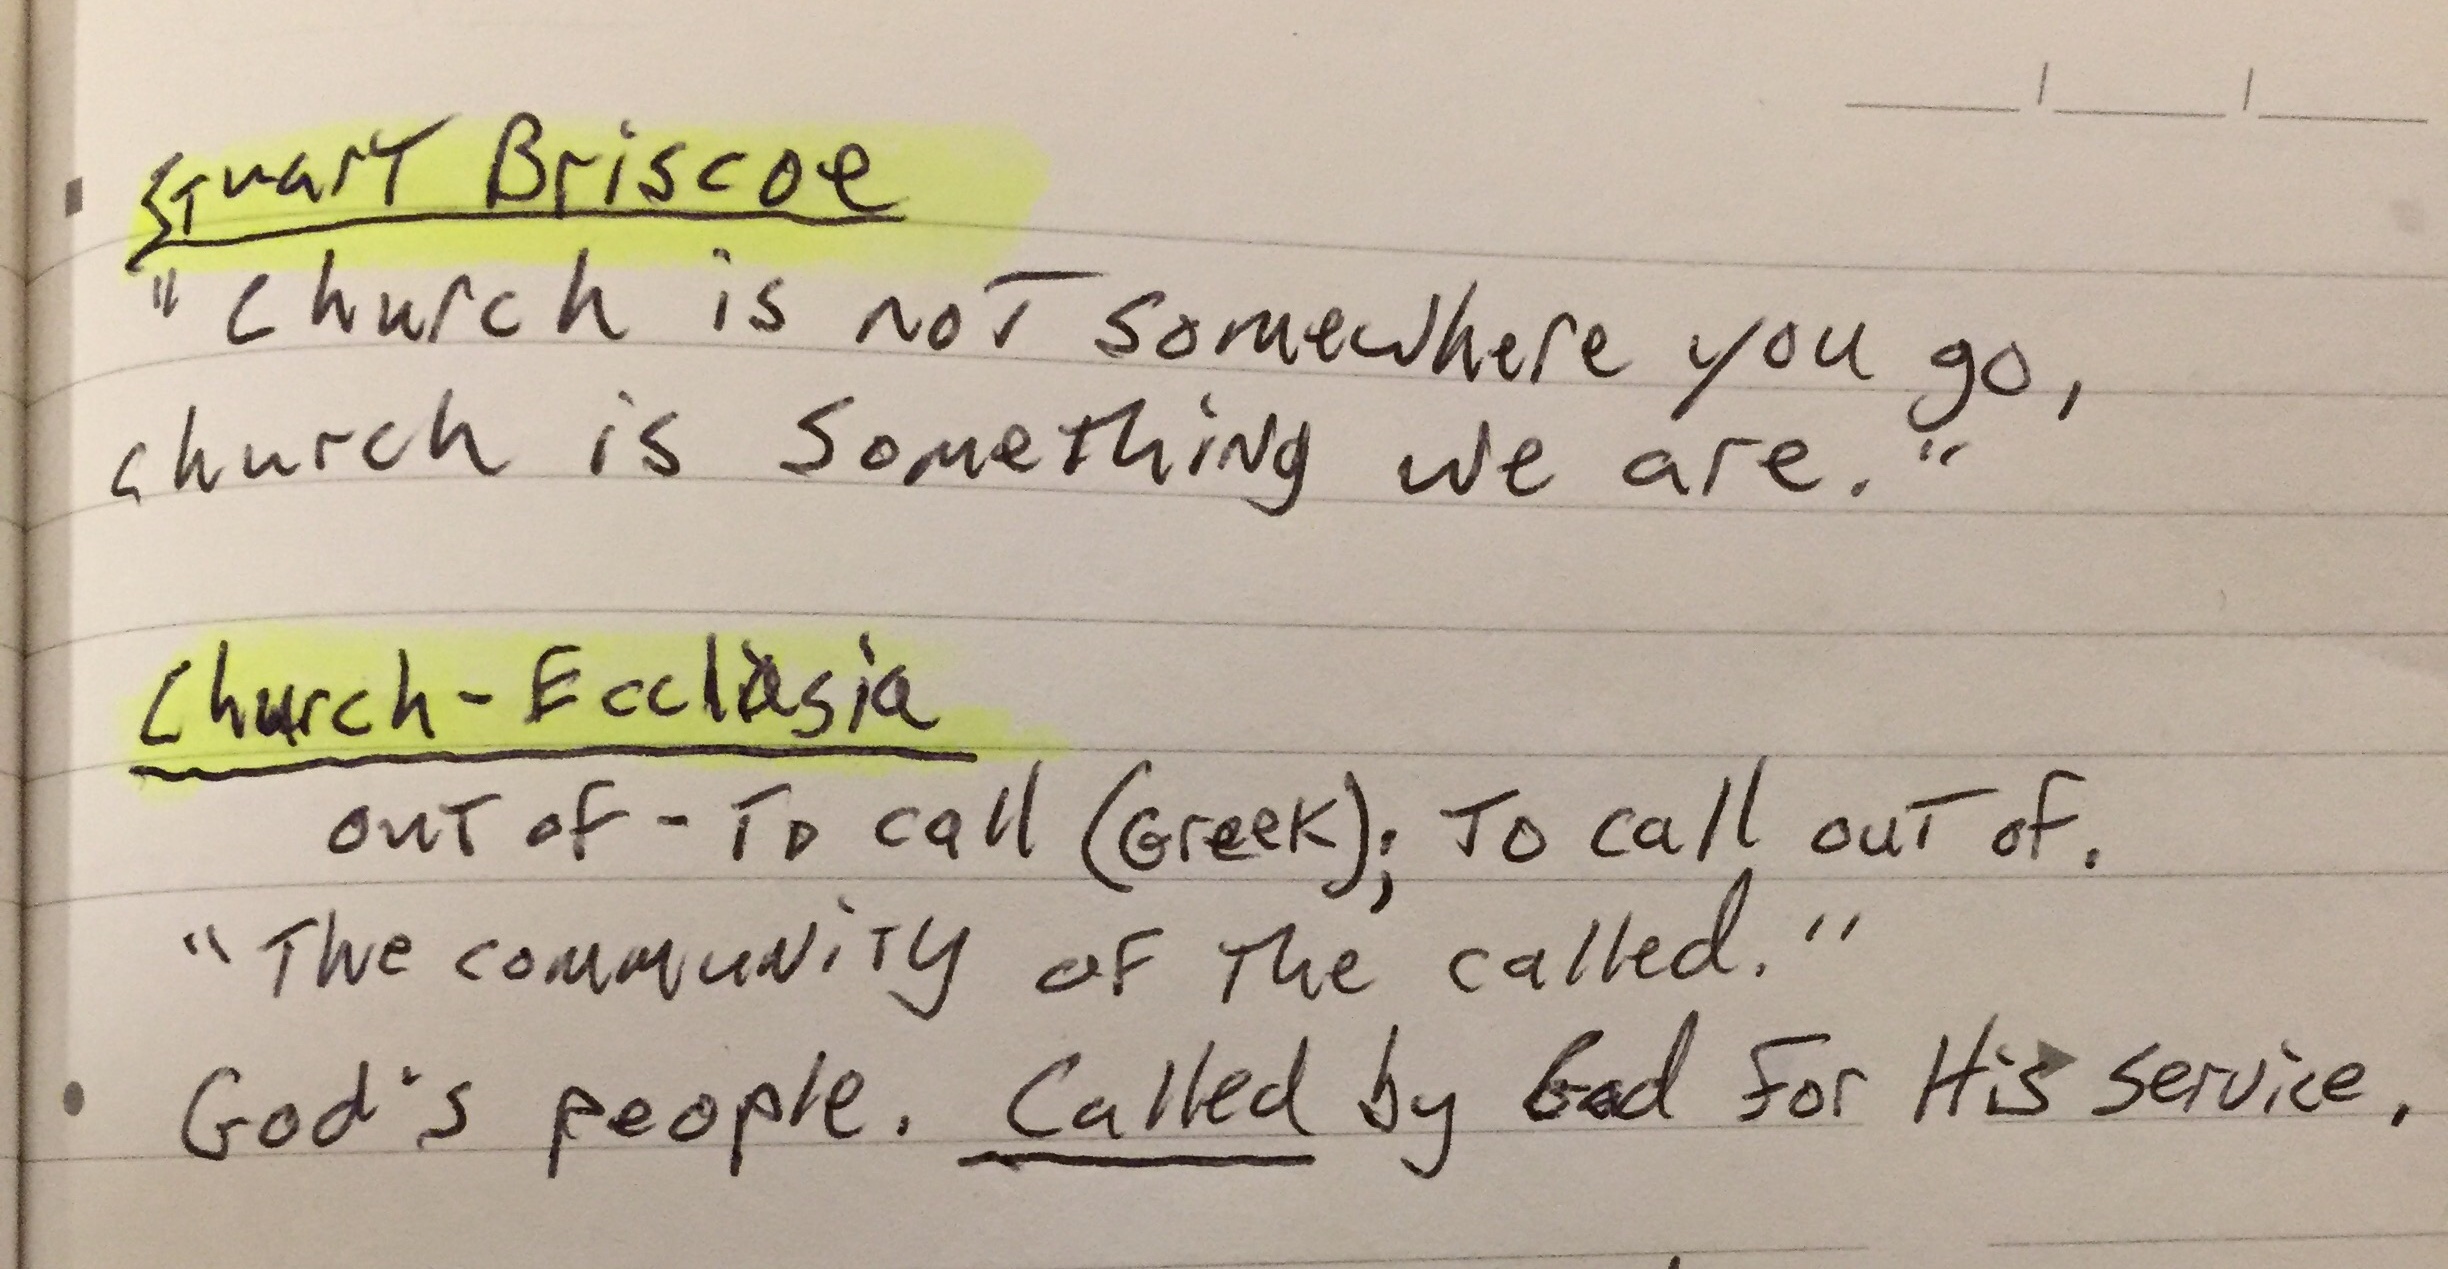 Stuart Briscoe
"Church is not somewhere you go,
church is something we are."
Church - Ecclasia
out of - To call (Greek); To call out of.
"The community of the called."
God's people. Called by God for His service.